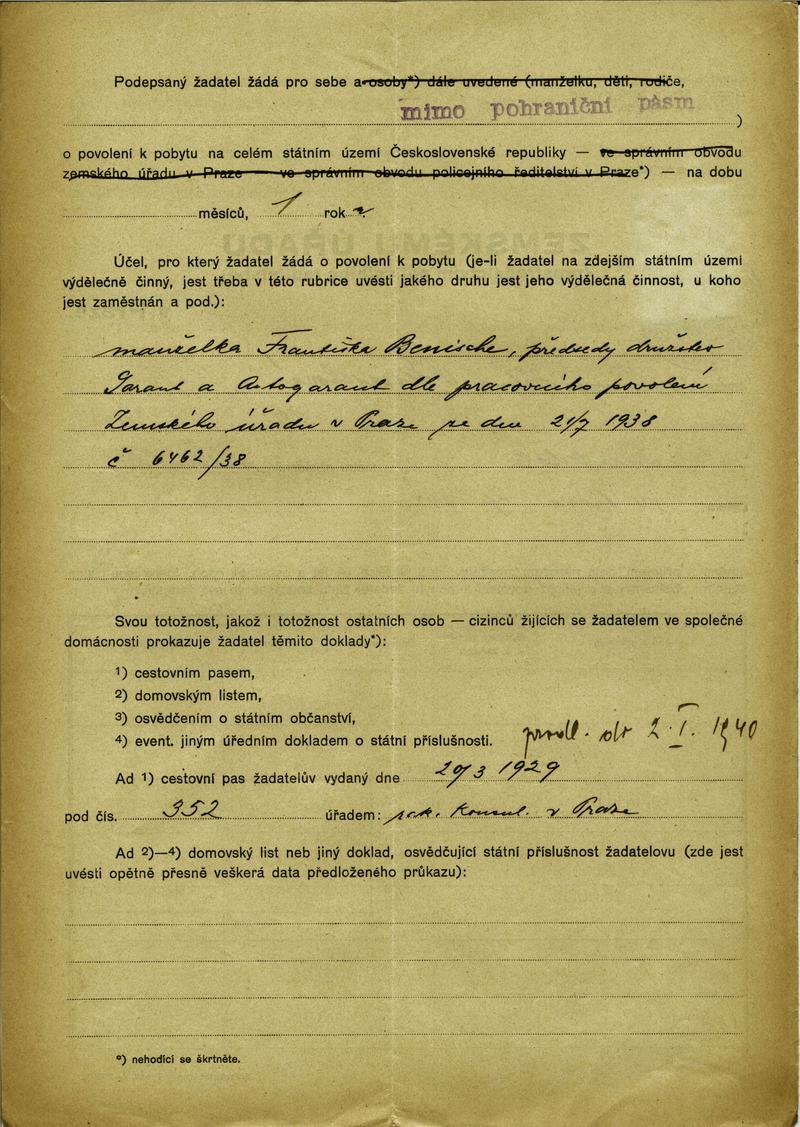 Podepsaný žadatel žádá pro sebe a osoby*) dále uvedené (manželku, děti, rodiče,
mimo pohraniční pásm
)
o povolení k pobytu na celém státním území Československé republiky — ve správním obvodu
zemského úřadu v Praze — ve správním obvodu policejního ředitelství v Praze*) — na dobu
měsíců, 1 rok
Účel, pro který žadatel žádá o povolení k pobytu (je-li žadatel na zdejším státním území
výdělečně činný, jest třeba v této rubrice uvésti jakého druhu jest jeho výdělečná činnost, u koho
jest zaměstnán a pod.):
manželka Františka Benische, předsedy družstev
Garant a Autogarant dle pracovního povolení
Zemského úřadu v Praze ze dne 21/7 1938
č 6462/38
Svou totožnost, jakož i totožnost ostatních osob — cizinců žijících se žadatelem ve společné
domácnosti prokazuje žadatel těmito doklady*):
1) cestovním pasem,
2) domovským listem,
3) osvědčením o státním občanství,
4) event. jiným úředním dokladem o státní příslušnosti.
prodl. do 2.I.1940
Ad 1) cestovní pas žadatelův vydaný dne 20/3 1929
pod čís. 352 úřadem: Konsul. v Praze
Ad 2)—4) domovský list neb jiný doklad, osvědčující státní příslušnost žadatelovu (zde jest
uvésti opětně přesně veškerá data předloženého průkazu):
*) nehodící se škrtněte.